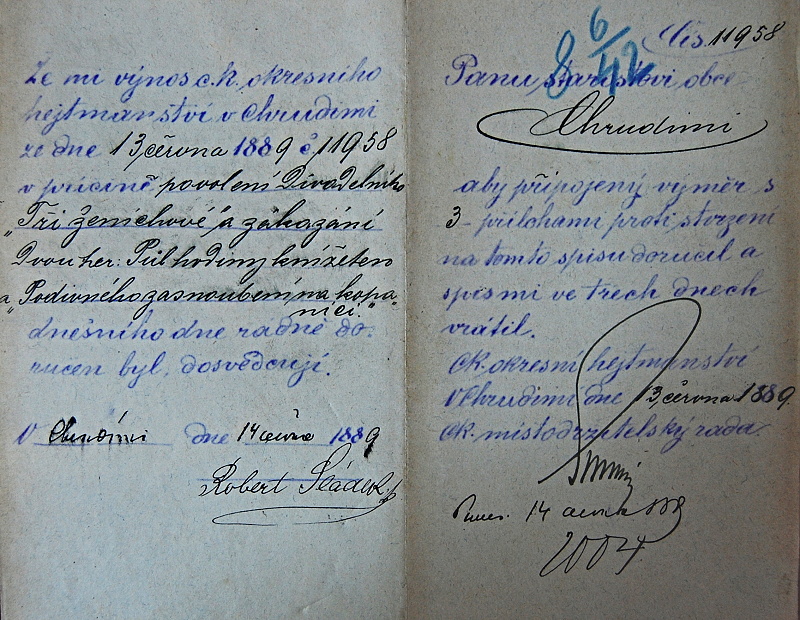 Že mi výnos c. k. okresního
hejtmanství v Chrudimi
ze dne 13 června 1889 č 11958
v příčině povolení Divadelního
„Tři ženichové" a zákazání
Dvou her: Půl hodiny knížetem
a „Podivného zasnoubení na kopa-
nici."
dnešního dne řádně do-
ručen byl, dosvědčují.
V Chrudimi dne 14 června 1889
Robert Sládek
Čís. 11958
8 6/42
Panu starostovi obce
Chrudimi
aby připojený výměr s
3 - přílohami proti stvrzení
na tomto spisu doručil a
spis mi ve třech dnech
vrátil.
Ck. okresní hejtmanství
V Chrudimi dne 13 června 1889.
Ck. místodržitelský rada.
14
2004